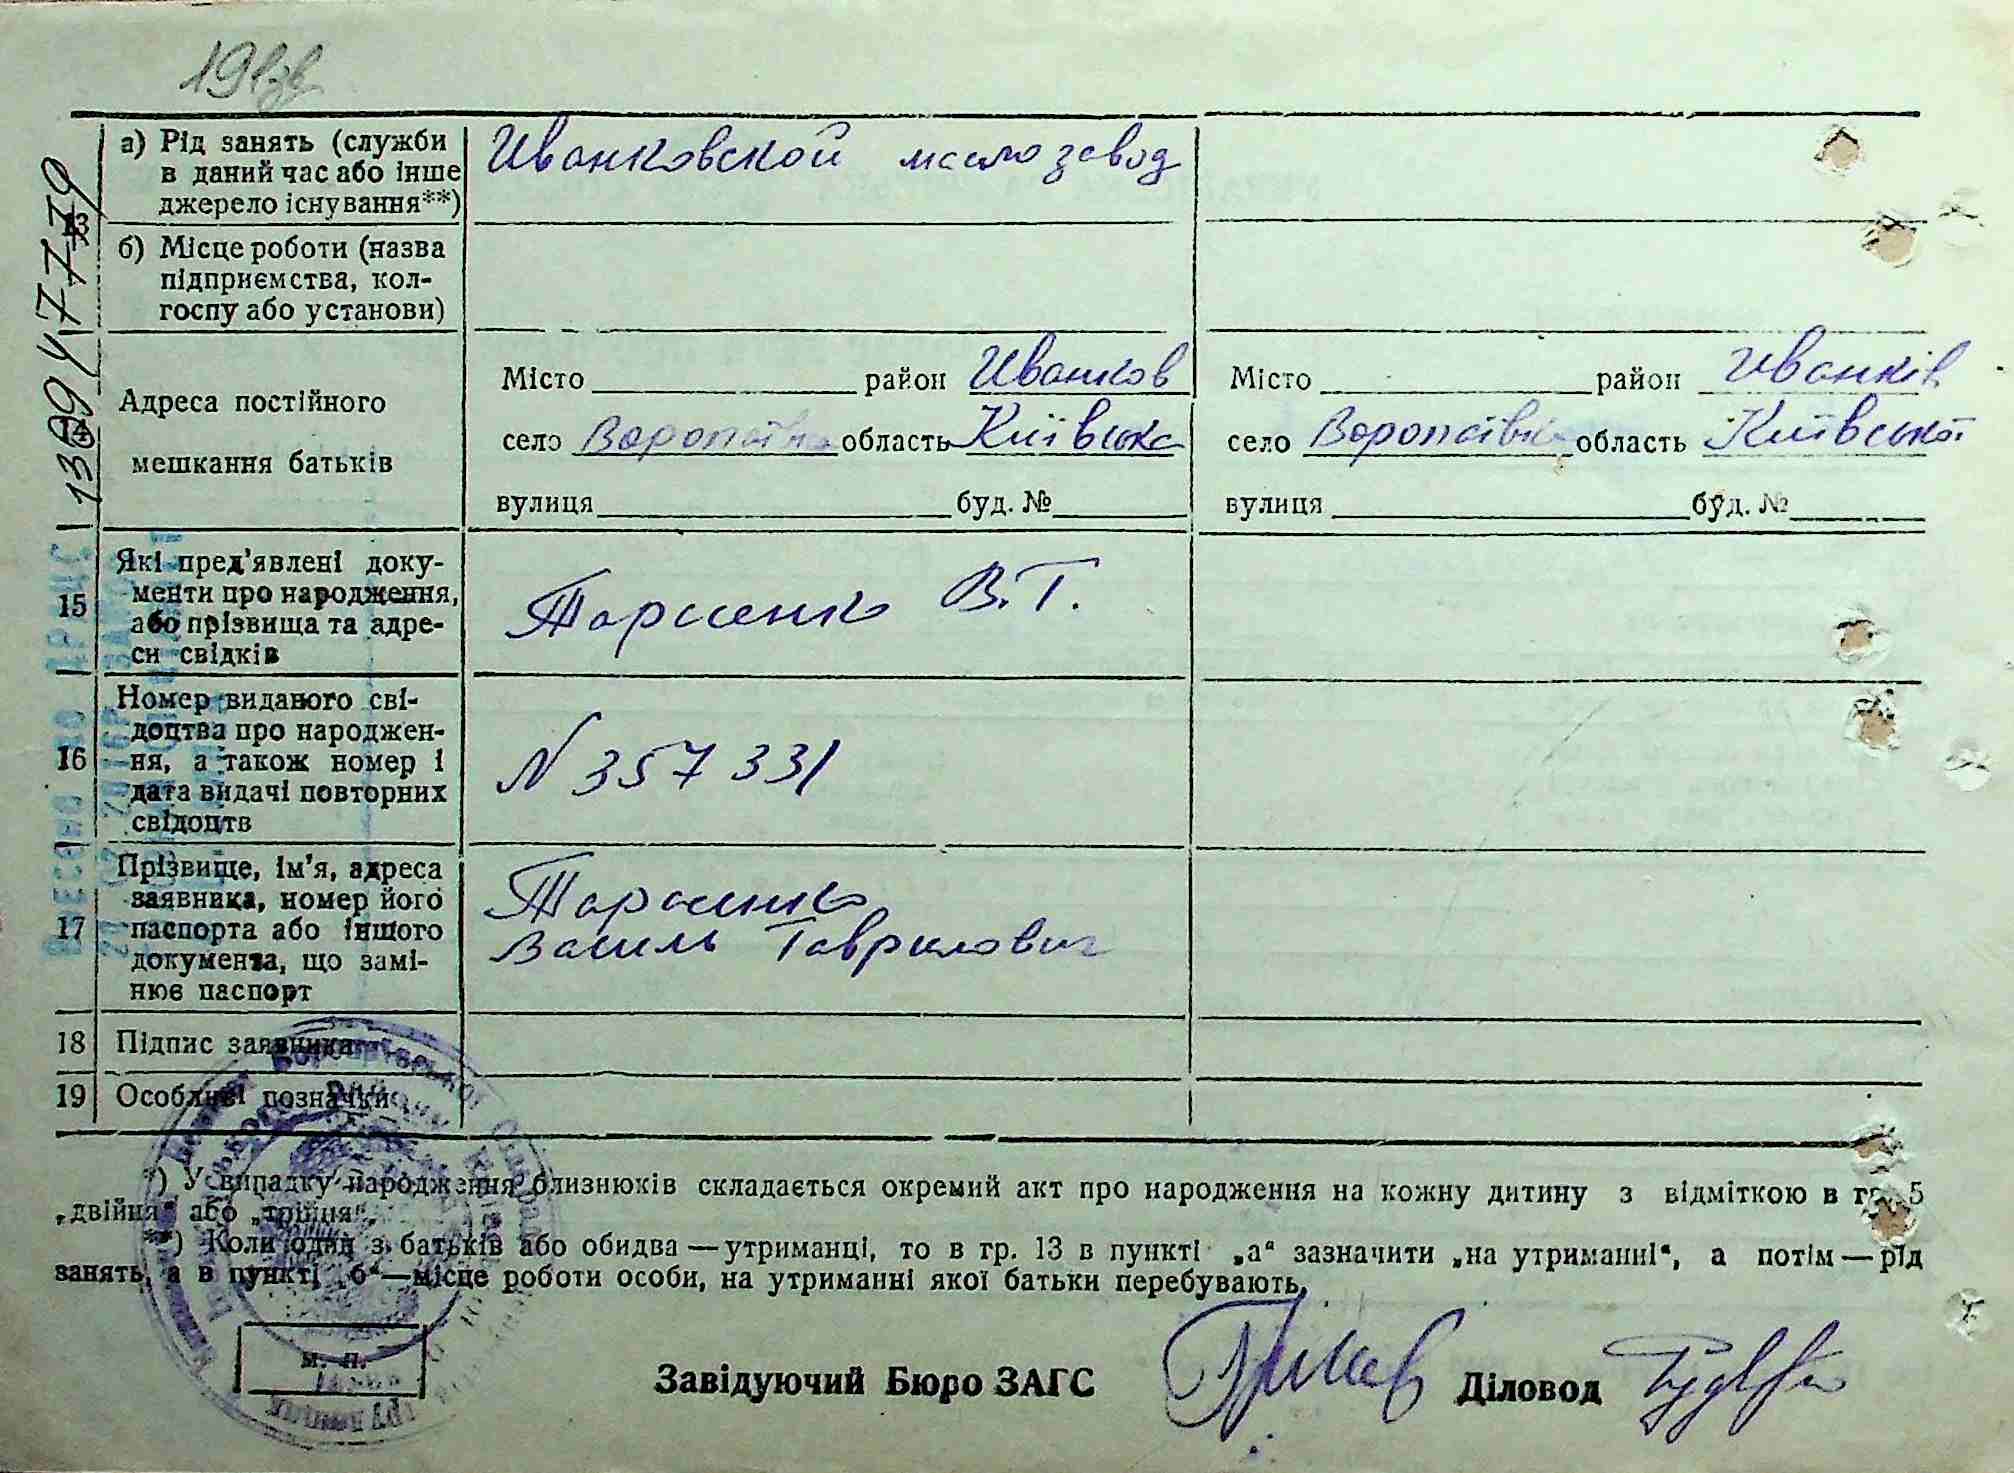 а) Рід занять (служби
в даний час або інше
джерело існування**)
Иванковской маслозавод
13
б) Місце роботи (назва
підприємства, кол-
госпу або установи)
14
Адреса постійного
мешкання батьків
Місто район Иванков
село Воропаївка область Київська
вулиця буд. №
Місто район Иванків
село Воропаївка область Київська
вулиця буд. №
15
Які пред'явлені доку-
менти про народження,
або прізвища та адре-
си свідків
Тарасенко В.Г.
16
Номер виданого сві-
доцтва про народжен-
ня, а також номер і
дата видачі повторних
свідоцтв
N 357331
17
Прізвище, ім'я, адреса
заявника, номер його
паспорта або іншого
документа, що замі-
нює паспорт
Тарасенко
Василь Гаврилович
18 Підпис заявника
19 Особливі позначки
*) У випадку народження близнюків складається окремий акт про народження на кожну дитину з відміткою в гр. 5
„двійня“ або „трійня“.
**) Коли один з батьків або обидва — утриманці, то в гр. 13 в пункті „а“ зазначити „на утриманні“, а потім — рід
занять, а в пункті „б“ — місце роботи особи, на утриманні якої батьки перебувають.
м. п.
Завідуючий Бюро ЗАГС Діловод